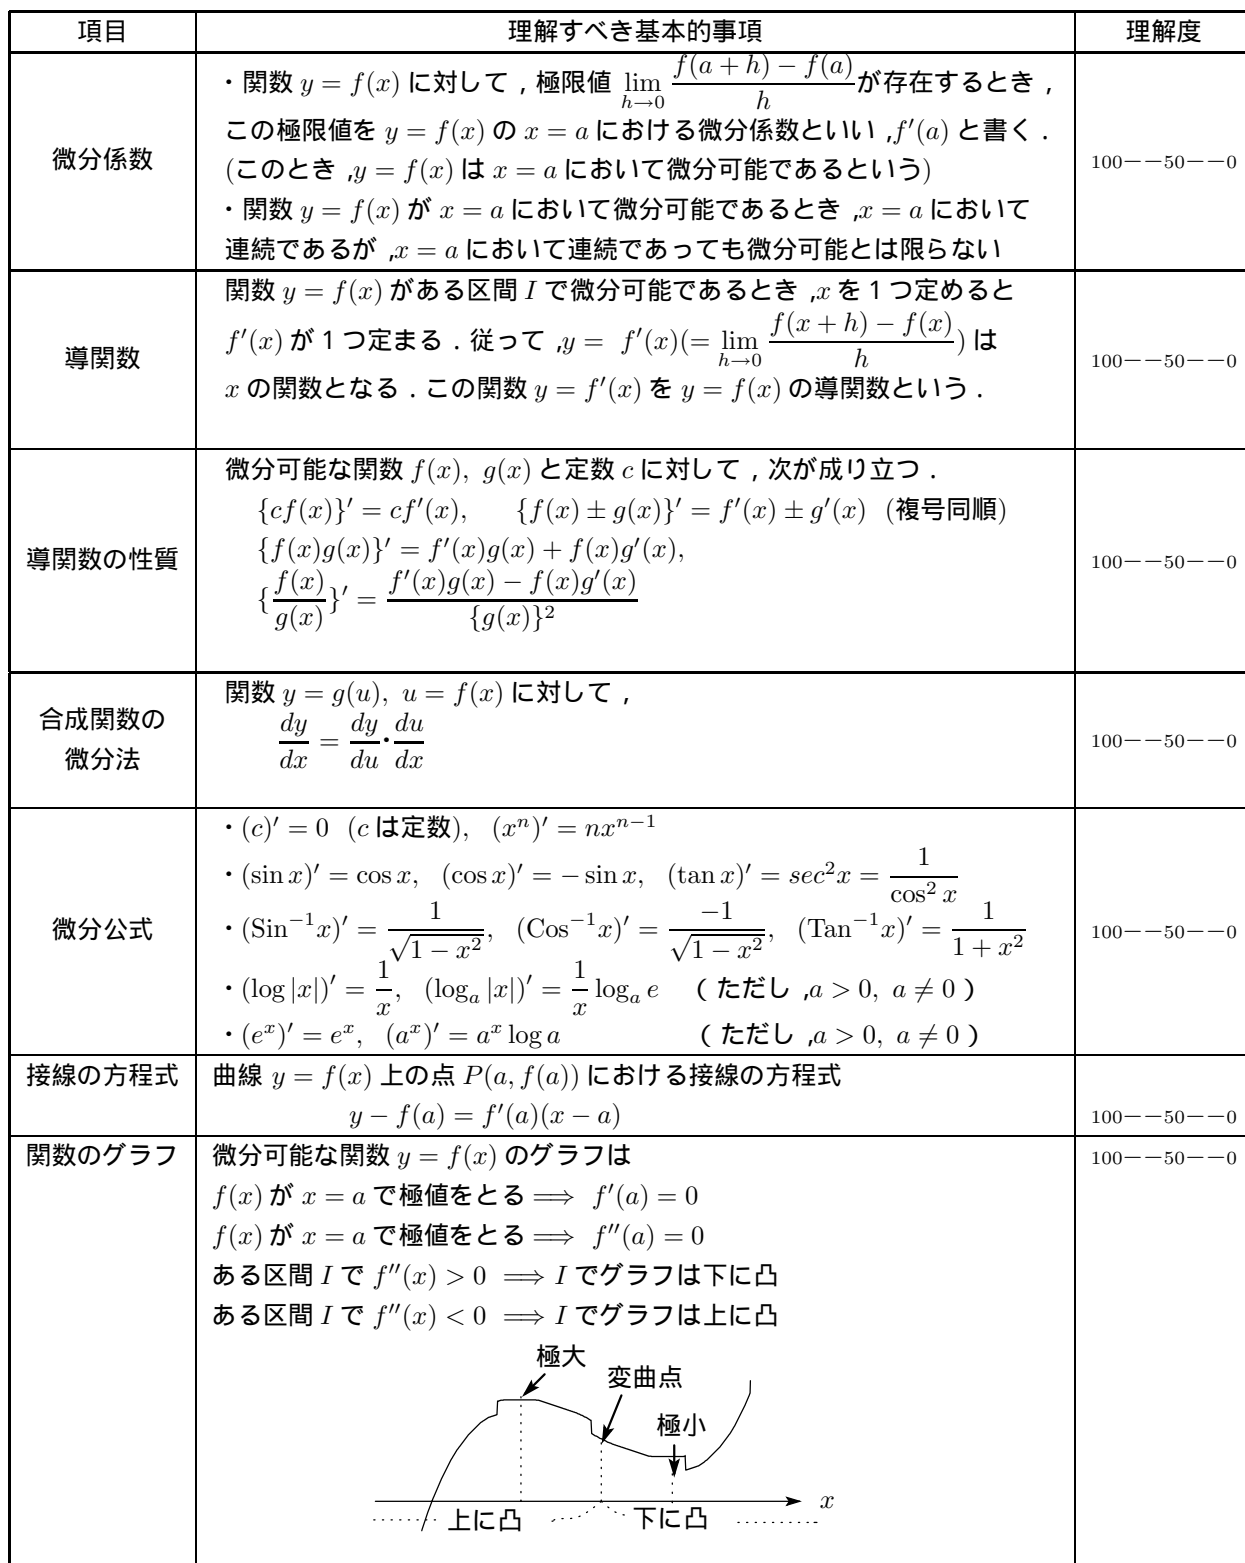 項目 理解すべき基本的事項 理解度
・関数 y = f(x) に対して，極限値 lim_{h→0} \frac{f(a + h) − f(a)}{h} が存在するとき，
この極限値を y = f(x) の x = a における微分係数といい，f′(a) と書く．
微分係数 (このとき，y = f(x) は x = a において微分可能であるという) 100−−50−−0
・関数 y = f(x) が x = a において微分可能であるとき，x = a において
連続であるが，x = a において連続であっても微分可能とは限らない
関数 y = f(x) がある区間 I で微分可能であるとき，x を 1 つ定めると
導関数 f′(x) が 1 つ定まる．従って，y = f′(x)(= lim_{h→0} \frac{f(x + h) − f(x)}{h}) は 100−−50−−0
x の関数となる．この関数 y = f′(x) を y = f(x) の導関数という．
微分可能な関数 f(x), g(x) と定数 c に対して，次が成り立つ．
{cf(x)}′ = cf′(x), {f(x) ± g(x)}′ = f′(x) ± g′(x) (複号同順)
導関数の性質 {f(x)g(x)}′ = f′(x)g(x) + f(x)g′(x), 100−−50−−0
{\frac{f(x)}{g(x)}}′ = \frac{f′(x)g(x) − f(x)g′(x)}{{g(x)}²}
関数 y = g(u), u = f(x) に対して，
合成関数の
微分法 \frac{dy}{dx} = \frac{dy}{du}・\frac{du}{dx} 100−−50−−0
・(c)′ = 0 (c は定数), (xⁿ)′ = nxⁿ⁻¹
・(sin x)′ = cos x, (cos x)′ = − sin x, (tan x)′ = sec²x = \frac{1}{cos² x}
微分公式 ・(Sin⁻¹x)′ = \frac{1}{√(1 − x²)}, (Cos⁻¹x)′ = \frac{−1}{√(1 − x²)}, (Tan⁻¹x)′ = \frac{1}{1 + x²} 100−−50−−0
・(log |x|)′ = \frac{1}{x}, (log_a |x|)′ = \frac{1}{x} log_a e （ただし，a > 0, a ≠ 0）
・(eˣ)′ = eˣ, (aˣ)′ = aˣ log a （ただし，a > 0, a ≠ 0）
接線の方程式 曲線 y = f(x) 上の点 P(a, f(a)) における接線の方程式
y − f(a) = f′(a)(x − a) 100−−50−−0
関数のグラフ 微分可能な関数 y = f(x) のグラフは 100−−50−−0
f(x) が x = a で極値をとる ⟹ f′(a) = 0
f(x) が x = a で極値をとる ⟹ f′′(a) = 0
ある区間 I で f′′(x) > 0 ⟹ I でグラフは下に凸
ある区間 I で f′′(x) < 0 ⟹ I でグラフは上に凸
極大
変曲点
極小
x
上に凸 下に凸